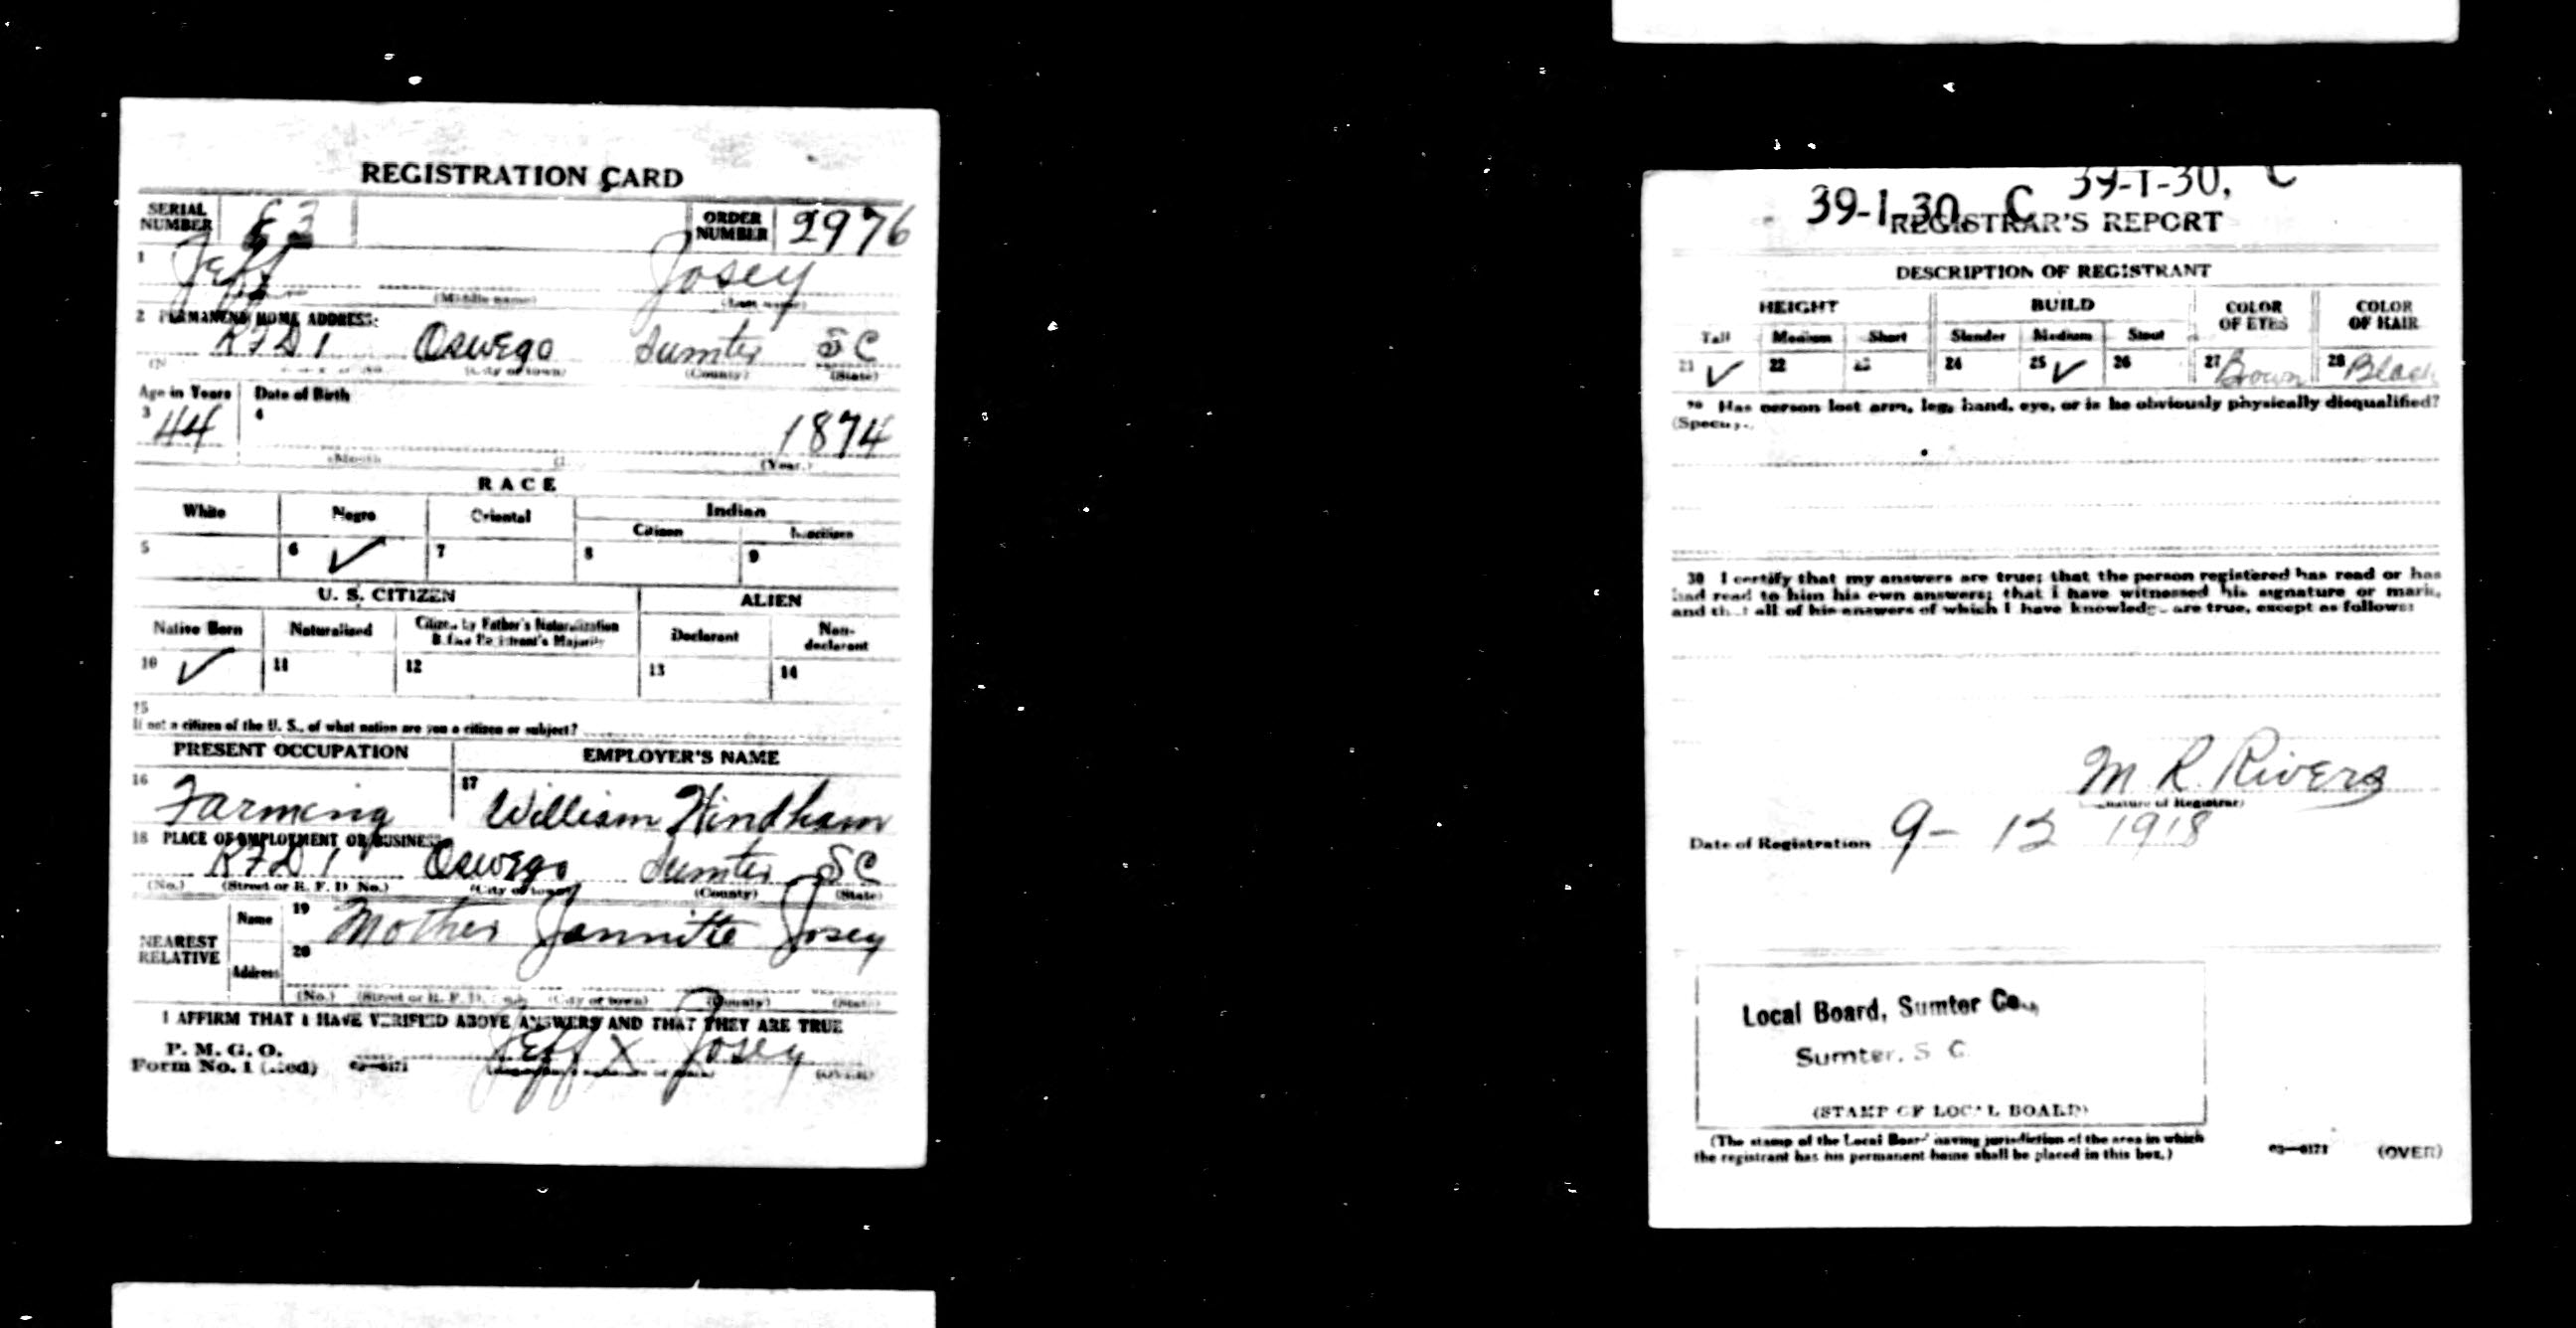 REGISTRATION CARD
SERIAL NUMBER
ORDER NUMBER 2976
1 Jeff Josey
(Middle name) (Last name)
2 PERMANENT HOME ADDRESS:
RFD 1 Oswego Sumter SC
(City or town) (County) (State)
Age in Years Date of Birth
3 44 4 1874
(Month) (Year.)
RACE
White Negro Oriental Indian
Citizen Noncitizen
5 6 ✓ 7 8 9
U. S. CITIZEN ALIEN
Native Born Naturalized Citizen by Father's Naturalization Before Registrant's Majority Declarant Non-declarant
10 ✓ 11 12 13 14
15
If not a citizen of the U. S., of what nation are you a citizen or subject?
PRESENT OCCUPATION EMPLOYER'S NAME
16 Farming 17 William Windham
18 PLACE OF EMPLOYMENT OR BUSINESS
RFD 1 Oswego Sumter SC
(No.) (Street or R. F. D. No.) (City or town) (County) (State)
NEAREST RELATIVE
Name 19 Mother Jannitte Josey
Address 20
(No.) (Street or R. F. D. No.) (City or town) (County) (State)
I AFFIRM THAT I HAVE VERIFIED ABOVE ANSWERS AND THAT THEY ARE TRUE
P. M. G. O.
Form No. 1 (Red) 03—6171 Jeff X Josey (OVER)
39-1-30, C
39-1-30, C
REGISTRAR'S REPORT
DESCRIPTION OF REGISTRANT
HEIGHT BUILD COLOR OF EYES COLOR OF HAIR
Tall Medium Short Slender Medium Stout
21 ✓ 22 23 24 25 ✓ 26 27 Brown 28 Black
29 Has person lost arm, leg, hand, eye, or is he obviously physically disqualified?
(Specify.)
30 I certify that my answers are true; that the person registered has read or has
had read to him his own answers; that I have witnessed his signature or mark,
and that all of his answers of which I have knowledge are true, except as follows:
M. R. Rivers
(Signature of Registrar)
Date of Registration 9- 12 1918
Local Board, Sumter Co.,
Sumter, S. C.
(STAMP OF LOCAL BOARD)
(The stamp of the Local Board having jurisdiction of the area in which
the registrant has his permanent home shall be placed in this box.)
03—6171 (OVER)